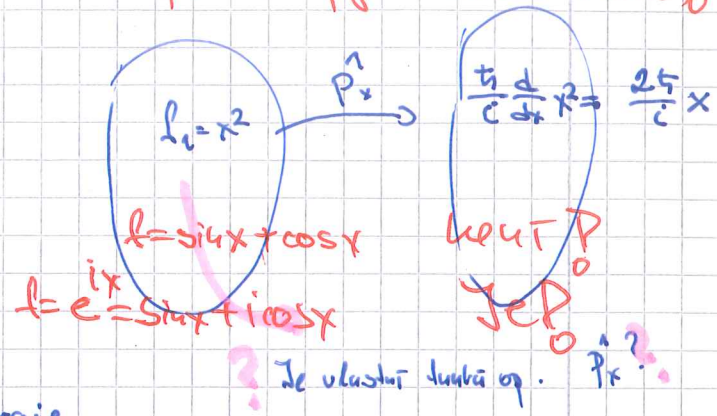 p̂ₓ
f₁ = x²
ħ/i d/dx x² = 2ħ/i x
f = sin x + cos x
není P₀
f = e^{ix} = sin x + i cos x
Je P₀
? Je vlastní funkcí op. p̂ₓ ?